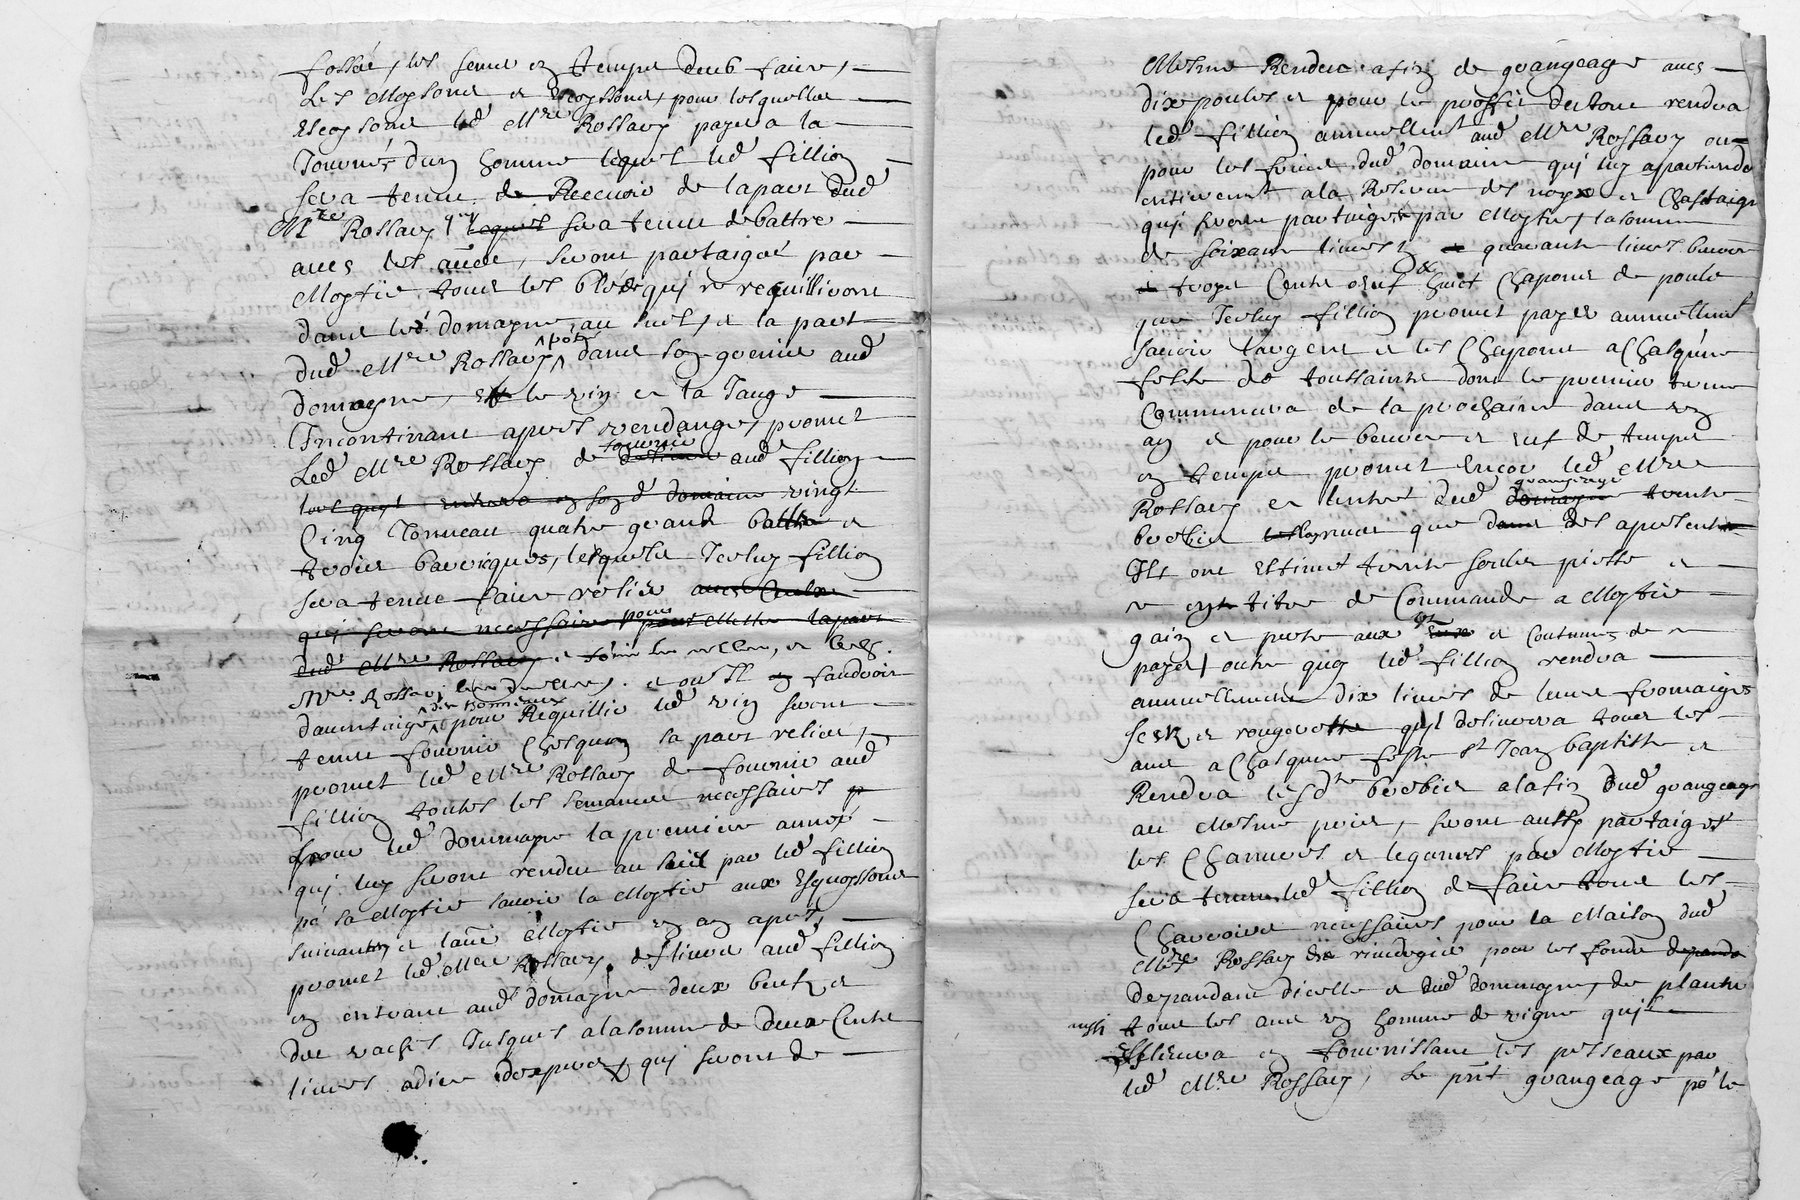 fossés, les semer en temps deub faire,
Les Moysons et Escoyssons, pour lesquelles
Escoysons led Mtre Rossary payera la
Journée dun homme lequel led fillion
sera tenu de Recevoir de la part dud
Mtre Rossary qui lequel sera tenu de battre
avec les aues, seront partaigé par
Moytié tous les bleds qui se requilliront
dans led domayne au sueil, et la part
dud Mtre Rossary portée dans son grenier aud
domayne, et le vin a la Tauge
Incontinant apres vendange, promet
Led Mtre Rossary de fournir aud fillion
tout quyl entrera en son d domaine vingt
Cinq Tonneau quatre grand et
trois barriques, lesquels Iceluy fillion
sera tenu faire relier avec Cercles
qui seront necessaire pour mettre la part
dud Mtre Rossary, et led
Mre Rossary et ou Il en faudroit
daventaige des tonneaux pour Requillir led vin seront
tenus fournir Chesqun sa part relier,
promet led Mtre Rossary de fournir aud
fillion toutes les semances necessaires p
pour led dommayne la premiere année
qui luy seront rendeu au sueil par led fillion
pr sa Moytié savoir la Moytié aux Esquoyssons
suivant et lautre Moytié en an apres,
promet led Mtre Rossary deslivrer aud fillion
en entrant aud domayne deux beufz et
des vaches Jusques a la somme de deux Cents
livres a dire dexperts, qui seront de
Mesme Rendeu a fin de grangeage avec
dix poules et pour le proffit du tout rendra
led fillion annuellemt aud Mtre Rossary ou
pour les fruits dud domaine qui luy apartiendr
entieremt a la Reserve des noyx et Chastaign
qui seront partaigés par Moytié, la somme
de soixante livres quarante livres beurre
troys Cents oeuf huict Chapons de poule
que Iceluy fillion promet payer annuellemt
savoir largent et les Chapons a Chasqune
feste de toussaints dont le premier terme
Commencera de la prochaine dans un
an et pour le beurre et euf de temps
en temps promet Encor led Mtre
Rossary a lentrée dud grangeage domayne trente
brebis que dans des apresent
Ils ont Estimés trente soubz piesse et
a titre de Commande a Moytié
gain et perte aux us et Coutumes de
payer, outre quoy led fillion rendra
annuellement dix livres de leurs fromaiges
secz et rougerette quyl delivrera tous les
ans a Chasque feste St Jean baptiste et
Rendra lesdts brebis a la fin dud grangeage
au Mesme prix, seront aussy partaigés
les Chanures et legumes par Moytié
sera tenu led fillion de faire tous les
Charrois necessaires pour la Maison dud
Mtre Rossary pour les fonds depands
Depandant dicelle et dud dommayne, de planter
aussi tous les ans un homme de vigne quil
Eslevera en fournissant les pesseaux par
led Mtre Rossary, Le prnt grangeage pr le